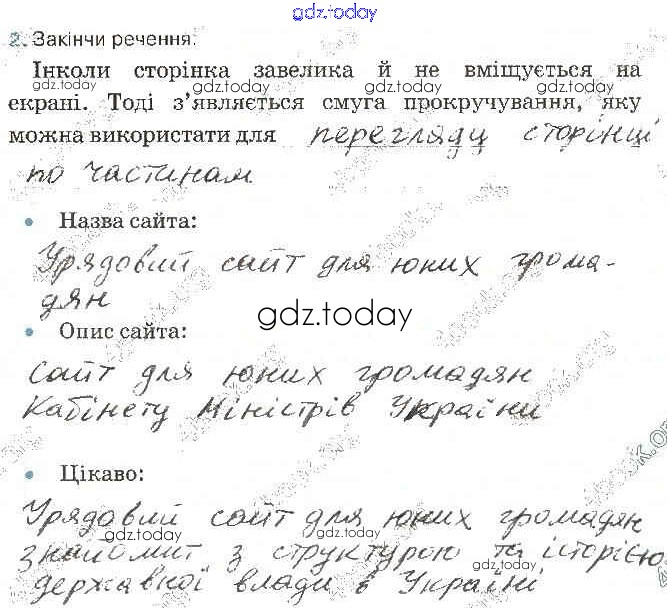 gdz.today
2. Закінчи речення.
Інколи сторінка завелика й не вміщується на
екрані. Тоді з’являється смуга прокручування, яку
можна використати для перегляду сторінці
по частинам
• Назва сайта:
Урядовий сайт для юних грома-
дян
gdz.today
• Опис сайта:
сайт для юних громадян
Кабінету Міністрів України
• Цікаво:
Урядовий сайт для юних громадян
знайомит з структурою та історією
державної влади в Україні